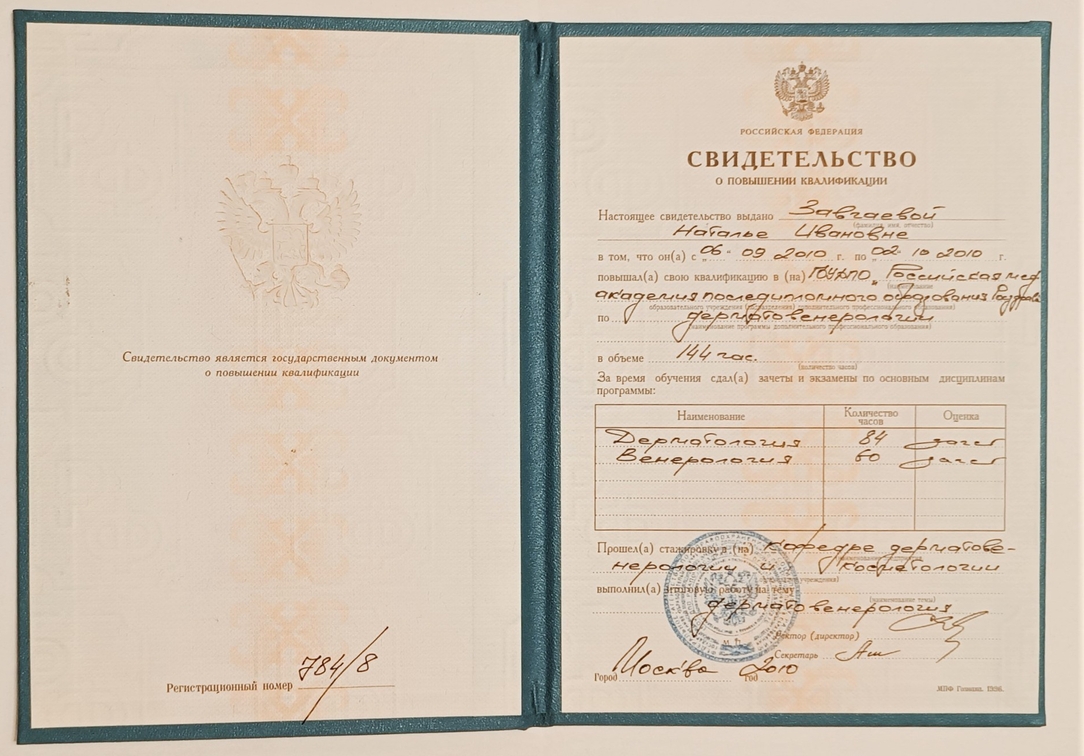 Свидетельство является государственным документом
о повышении квалификации
Регистрационный номер 784/8
РОССИЙСКАЯ ФЕДЕРАЦИЯ
СВИДЕТЕЛЬСТВО
О ПОВЫШЕНИИ КВАЛИФИКАЦИИ
Настоящее свидетельство выдано Завгаевой
(фамилия, имя, отчество)
Наталье Ивановне
в том, что он(а) с „06“ 09 2010 г. по 02 10 2010 г.
повышал(а) свою квалификацию в (на) ГОУДПО „Российская мед.
(наименование
академия последипломного образования Росздрава
образовательного учреждения (подразделения) дополнительного профессионального образования)
по дерматовенерологии
(наименование программы дополнительного профессионального образования)
в объеме 144 час.
(количество часов)
За время обучения сдал(а) зачеты и экзамены по основным дисциплинам
программы:
Наименование Количество часов Оценка
Дерматология 84 зачет
Венерология 60 зачет
Прошел(а) стажировку в (на) Кафедре дерматове-
нерологии и косметологии
выполнил(а) итоговую работу на тему
(наименование темы)
дерматовенерология
Ректор (директор)
Секретарь
Город Москва год 2010